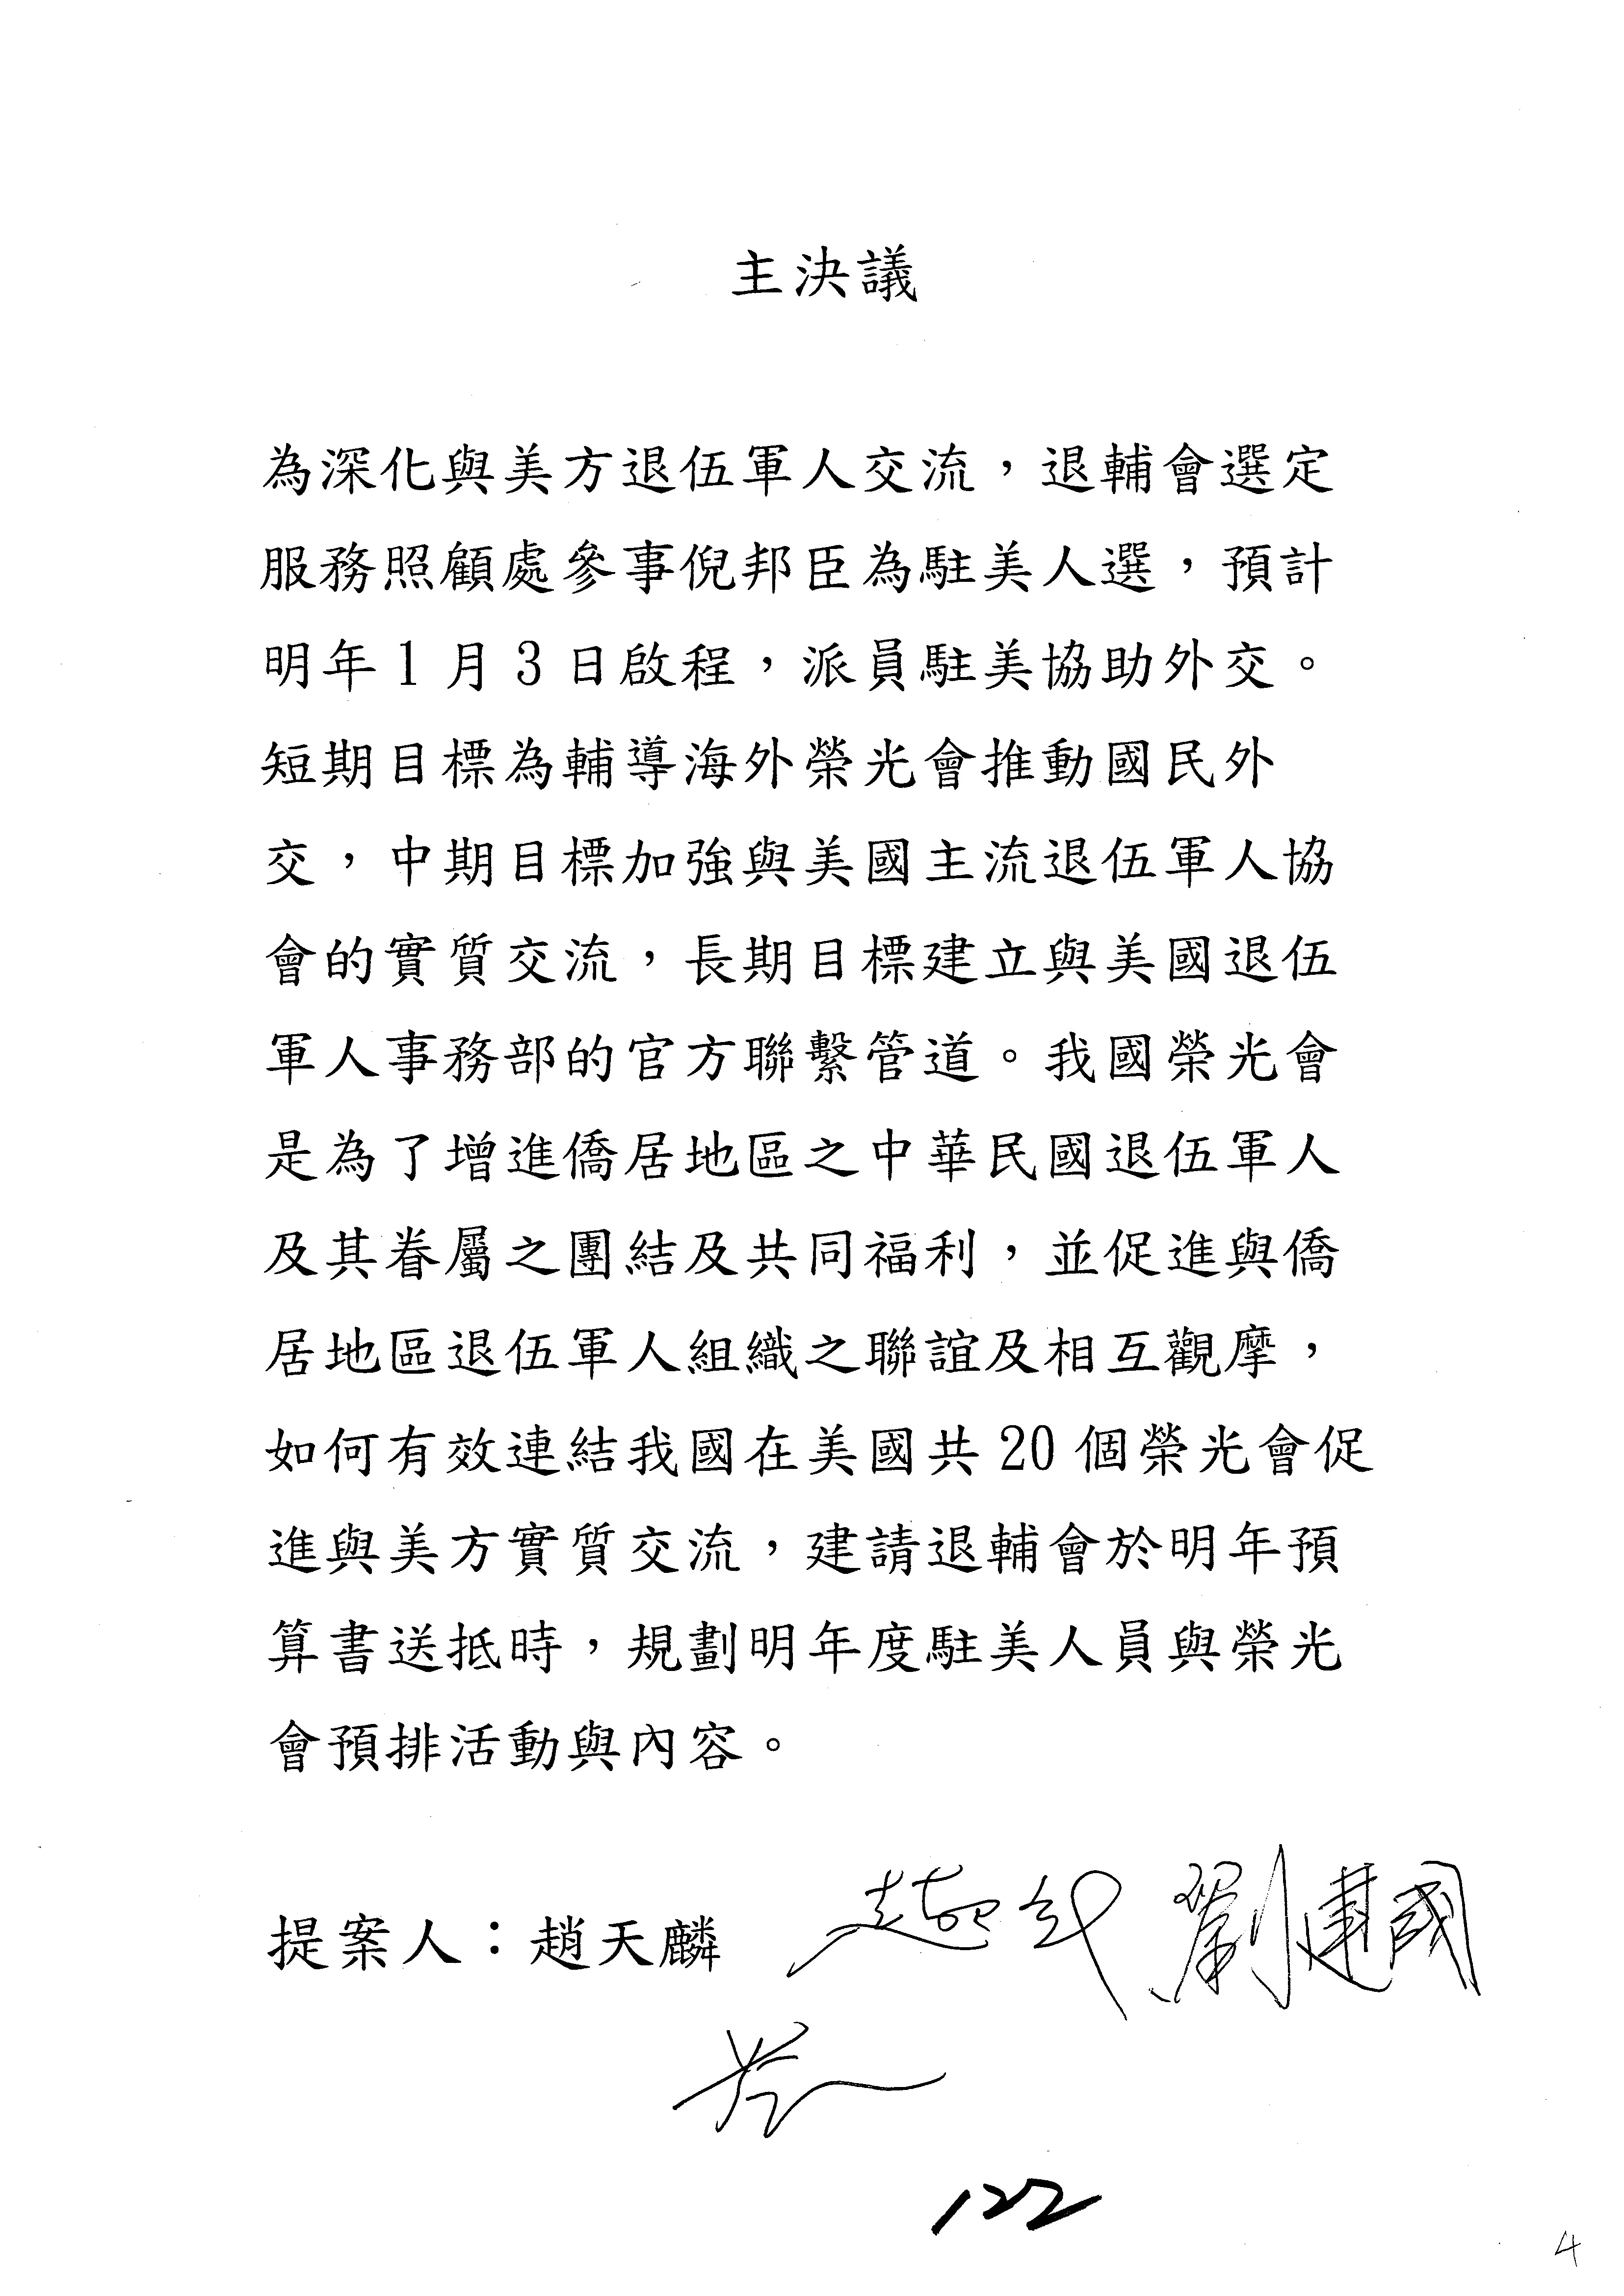 主決議
為深化與美方退伍軍人交流，退輔會選定
服務照顧處參事倪邦臣為駐美人選，預計
明年1月3日啟程，派員駐美協助外交。
短期目標為輔導海外榮光會推動國民外
交，中期目標加強與美國主流退伍軍人協
會的實質交流，長期目標建立與美國退伍
軍人事務部的官方聯繫管道。我國榮光會
是為了增進僑居地區之中華民國退伍軍人
及其眷屬之團結及共同福利，並促進與僑
居地區退伍軍人組織之聯誼及相互觀摩，
如何有效連結我國在美國共20個榮光會促
進與美方實質交流，建請退輔會於明年預
算書送抵時，規劃明年度駐美人員與榮光
會預排活動與內容。
提案人：趙天麟 劉建國
122
4